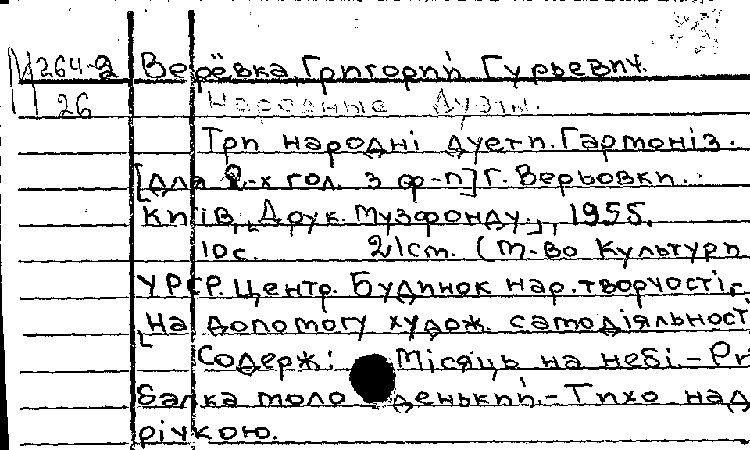 М264-2 Верёвка, Григорий Гурьевич.
26 Народные дуэты.
Три народні дуети. Гармоніз.
[для 2-х гол. з ф-п] Г. Верьовки.
Київ, „Друк. Музфонду", 1955.
10 с. 21 см. (М-во Культури
УРСР. Центр. Будинок нар. творчості.
„На допомогу худож. самодіяльност
Содерж: Місяць на небі. - Ри
балка молоденький. - Тихо над
річкою.